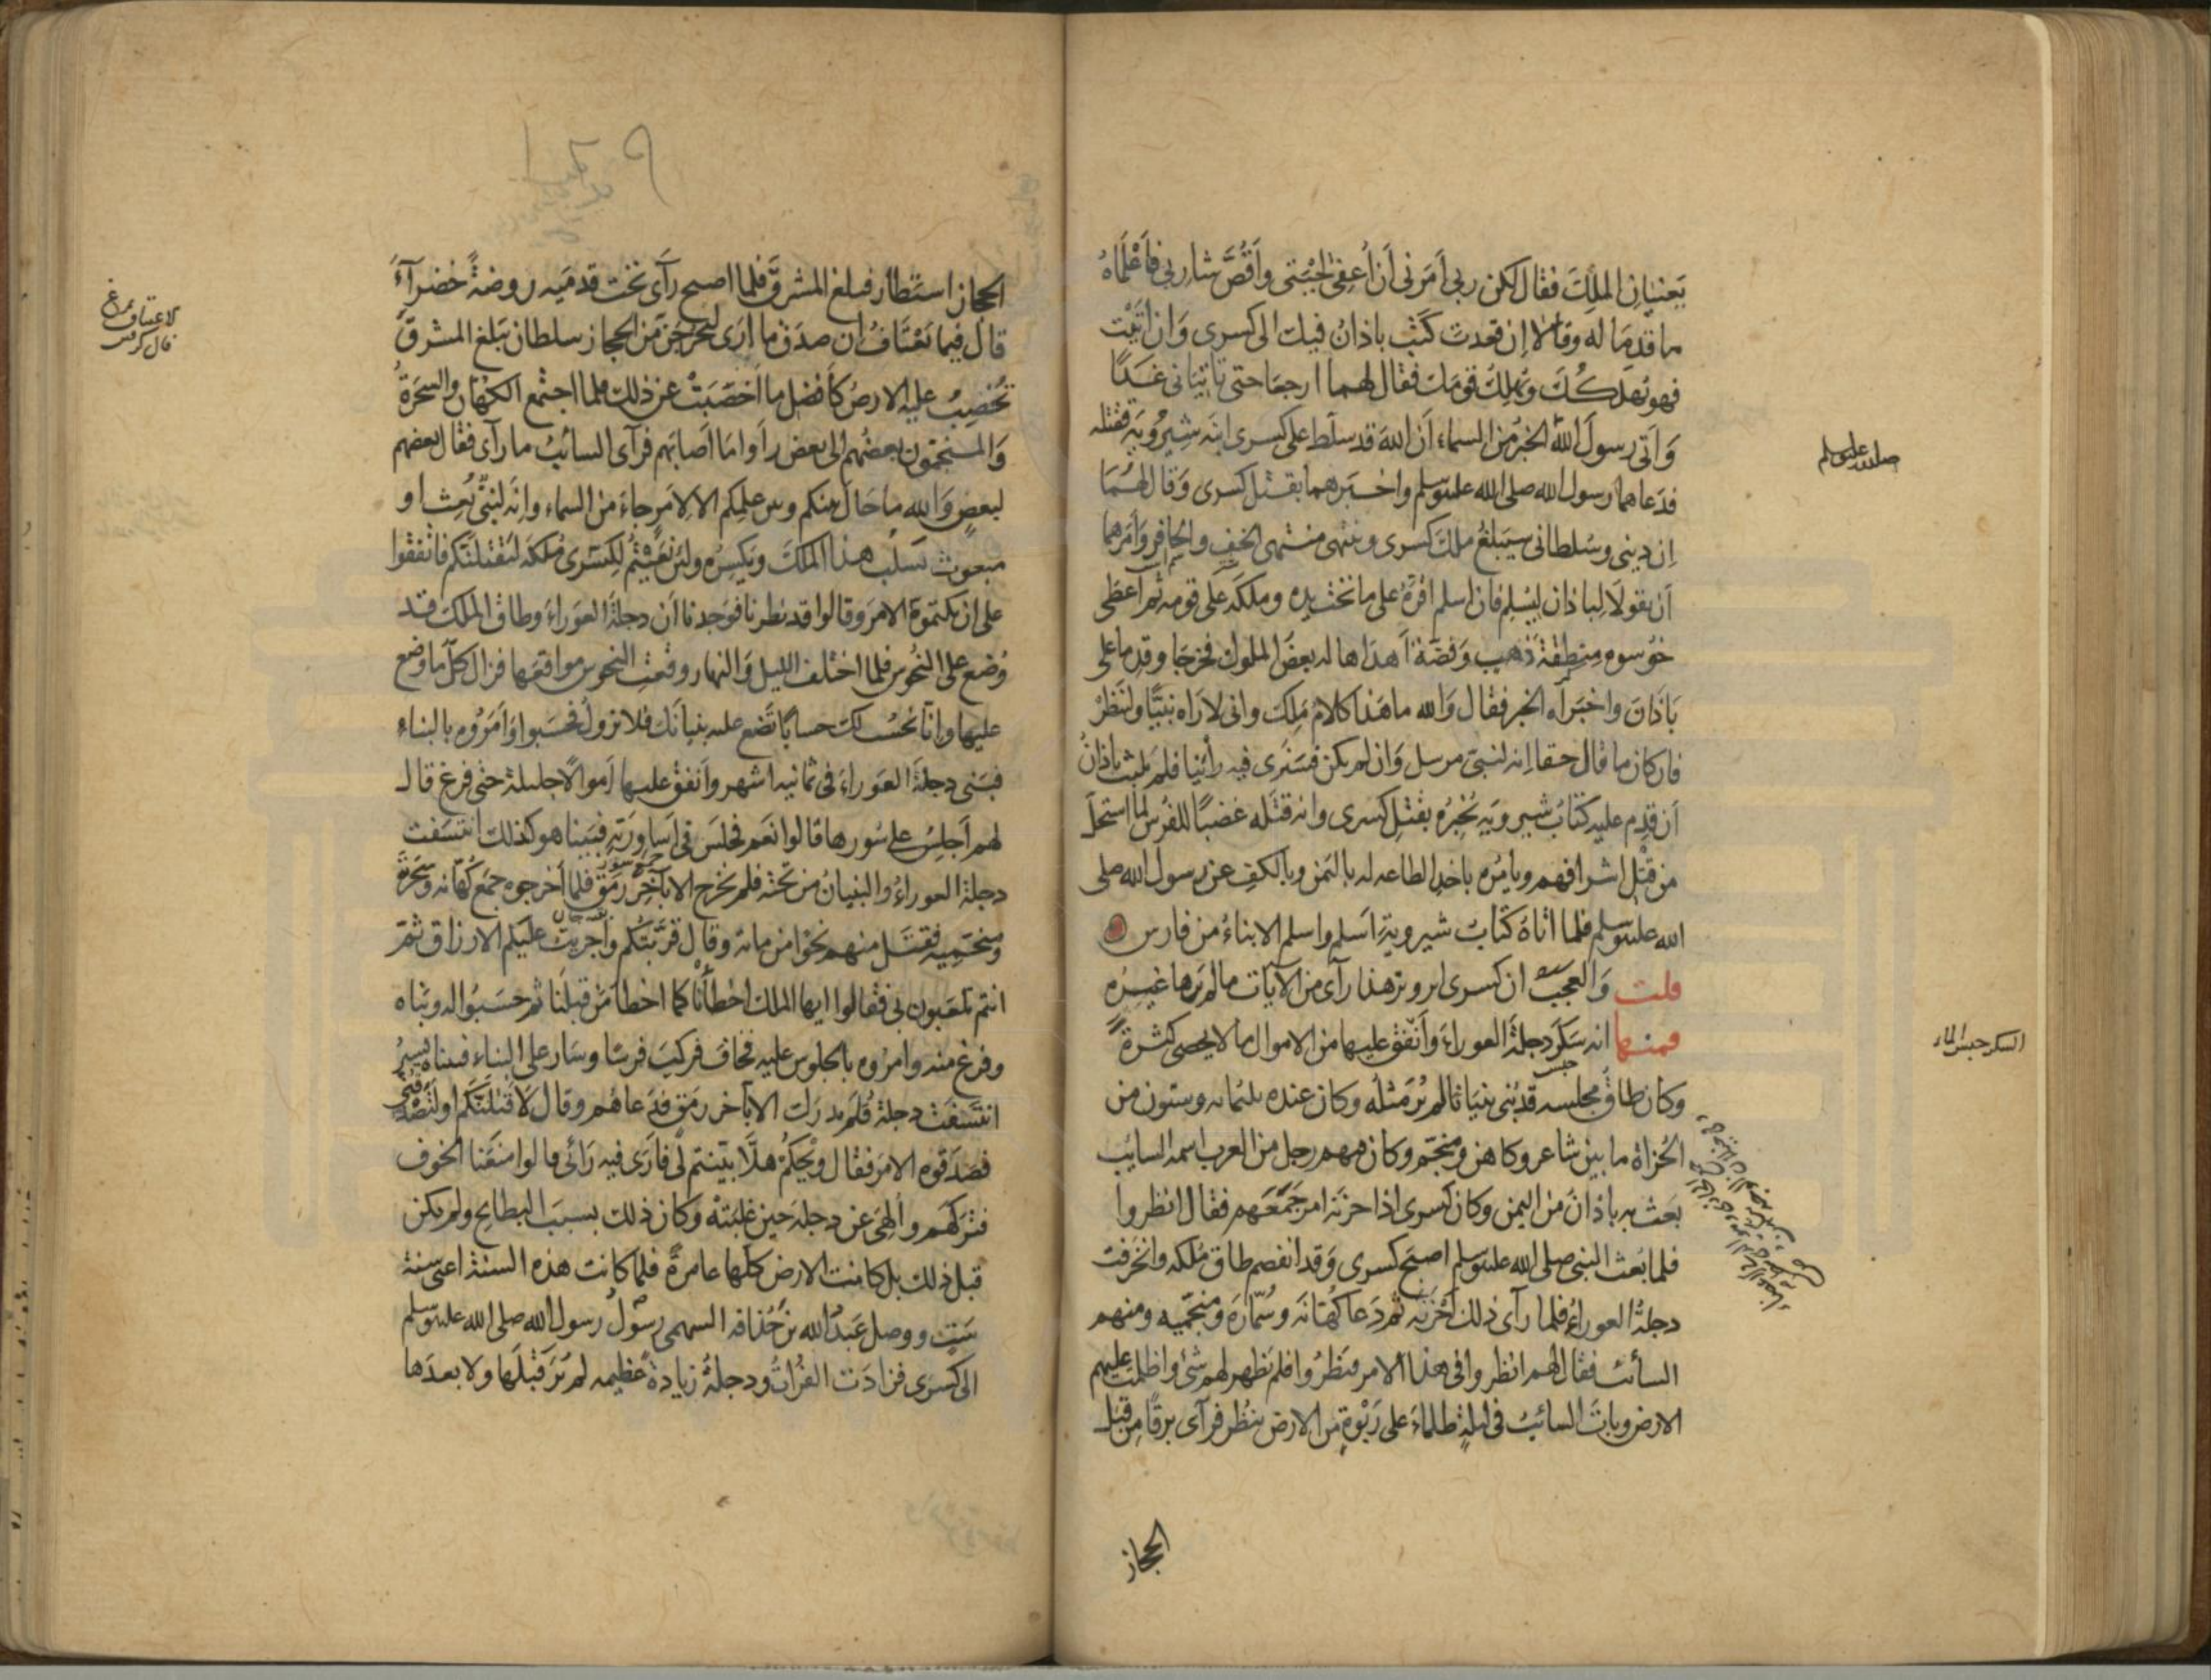 يَعنيان الملِكَ فقال لكن ربي اَمَرَني اَن اُعفِىَ لِحْيَتى واَقُصَّ شاربى فَاَعْلَمَاهُ
ما قَدِمَا له وقالا اِن فعدتَ كتَبَ باذانُ فيك الى كسرى وَان اَبَيْت
فهو يُهلكُكَ ويُهلِكُ قومَك فقال لهما ارجعَا حتى تاتِيَانى غَدًا
وَاَتى رسولَ الله الخبرُ من السماء اَن اللهَ قد سلّط على كسرى ابنَه شِيرُويَه فقتله
صلى الله عليه وسلم
فدعاهما رسول الله صلى الله عليه وسلم واخبرهما بقتل كسرى وَقال لهُمَا
اِن دِينى وسُلطانى سيَبلغُ مُلكَ كسرى وينتهى منتهى الخفِّ والحافر وَاَمَرهما
اَن يقولَا لِباذان لِيُسْلِم فان اسلم اُقرّهُ على ما تحت يده وملَّكَه على قومه ثم اَعطَى
خرّخسره مِنطقةَ ذهب وَفضّة اَهدَاها له بعضُ الملوك فخرجَا وقدِما على
بَاذَانَ واخبَرَاه الخبر فقال وَالله ما هَذا كلامُ مَلِك وانى لاَرَاه نبيًّا ولننظُرْ
فان كان ما قال حقا اِنه لنبىّ مرسل وَان لم يكن فسَنَرى فيه رأيَنا فلم يلبث باذانُ
اَن قدِم عليه كتابُ شيرويَه يُخْبِرُه بقتل كسرى وانه قتَله غضبًا للفُرس لما استحلّ
من قتْل اشرافهم ويأمُره باخذ الطاعه له باليَمن وبالكفِّ عن رسول الله صلى
الله عليه وسلم فلما اتاهُ كتابُ شيرويه اَسلم واسلم الابناءُ من فارس
قلت وَالعجَبُ ان كسرى ابرويز هذا رآى من الآيات ما لم يَرها غيرُه
فمنها انه سَكَرَ دجلةَ العوراءَ وَاَنْفَقَ عليها من الاموال ما لا يحصى كثرةً
السكر حبس الماء
وكان طاقُ مجلسه قد بُنى بنيانا لم يُرَ مثلُه وكان عنده ثلثمائه وستون من
الحُزاة ما بين شاعر وكاهن ومنجّم وكان منهم رجل من العرب اسمه السايب
بعَث به باذانُ من اليمن وكان كسرى اذا حزبَه امر جَمَعَهم فقال انظروا
فلما بُعث النبى صلى الله عليه وسلم اصبح كسرى وَقد انفصم طاق مُلكه وانخرقت
دجلةُ العوراءُ فلما رآى ذلك اَحْزنَه ثم دَعا كُهّانَه وسُحَّارَه ومنجّميه ومنهم
السائب فقال لهم انظروا فى هذا الامر فنظرُوا فلم يَظهر لهم شئ واظلمت عليهم
الارض وباتَ السائبُ فى ليلةٍ ظلماءَ على رَبْوةٍ من الارض ينظُر فرآى برقًا مِن قِبَل
الحجاز
الحجاز استطار فبلغ المشرقَ فلما اصبح رآَى تحت قدميه روضةً خضرآءَ
قال فيما يَعْتَافُ ان صدَق ما اَرَى ليَخرُجنّ من الحجاز سلطان يَبلغ المشرقَ
تُخصِبُ عليه الارضُ كاَفضل ما اَخصَبَتْ عن ذلك فلما اجتمع الكهّانُ والسحَرَةُ
وَالمنجمون بعضُهم الى بعض رأَوا مَا اَصابَهم فرآى السائبُ ما رآى فقال بعضهم
لبعضٍ وَالله ما حَالَ بينكم وبين علمِكم الا لِاَمرٍ جاءَ من السماء وانه لَنبىّ بُعِث او
مبعوث يَسلُب هذا المُلكَ ويَكسِرُه ولئن نَعَيْتُم لِكِسْرى مُلكَه ليَقْتلنّكم فاتفقوا
على ان يكتموهُ الامرَ وقالوا قد نظرنا فوَجدنا اَن دجلةَ العَوراءَ وطاق المَلِكِ قد
وُضع على النحُوس فلما اختلف الليل وَالنهار وقعت النحوس مواقعَها فزال كلّ ما وُضع
عليها وانا نحسُب لك حسابًا تَضع عليه بنيانك فلا تزولُ فحسَبوا وَاَمَرُوه بالبناءِ
فبَنى دجلةَ العَوراءَ فى ثمانيه اشهر واَنفق عليها اَموالًا جليلة حتى فرغ قال
لهم اَجلِسُ على سُورها قالوا نعَم فجلسَ فى اَساورَته فبَينا هو كذلك انتسَفت
دجلةُ العوراءُ والبنيانُ من تحته فلم يَخرج الا بآخِر رَمَقٍ فلما اَخرجوه جمع كُهّانَه وسَحَرَتَه
ومنجّميه فقتَل منهم نحوًا من مائة وقال قرّبتُكم واَجريتُ عليكم الارزاق ثم
انتم تلعَبون بى فقالوا ايها الملك اخطَأْنَا كما اخطأ مَن قبلَنا ثم حسَبُوا له وبَناه
وفرغ منه وامرُوه بالجلوس عليه فخافَ فركبَ فرسًا وسَار على البناء فبيناه يسيرُ
انتسَفتْ دجلةُ فلَم يدرَك الا بآخر رَمَق فدَعاهُم وقال لَاَقتُلنّكم او لتَصْدُقُنّى
فصَدَقوه الامرَ فقال ويْحَكُمْ هلّا بيّنتم لى فاَرَى فيه رَائى قالوا منعَنا الخوف
فتركَهُم ولُهِىَ عن دجلة حين غلبَتْه وكان ذلك بسبَب البطايح ولم يكن
قبل ذلك بل كانت الارض كلّها عامرةً فلما كانت هذه السنةُ اعنى سنة
سِتٍّ ووصل عَبدُ الله بن حُذافه السهمى رسُولُ رسول الله صلى الله عليه وسلم
الى كسرى فزادَت الفُراتُ ودجلةُ زيادةً عظيمه لم يُرَ قبْلَها ولا بعدَها